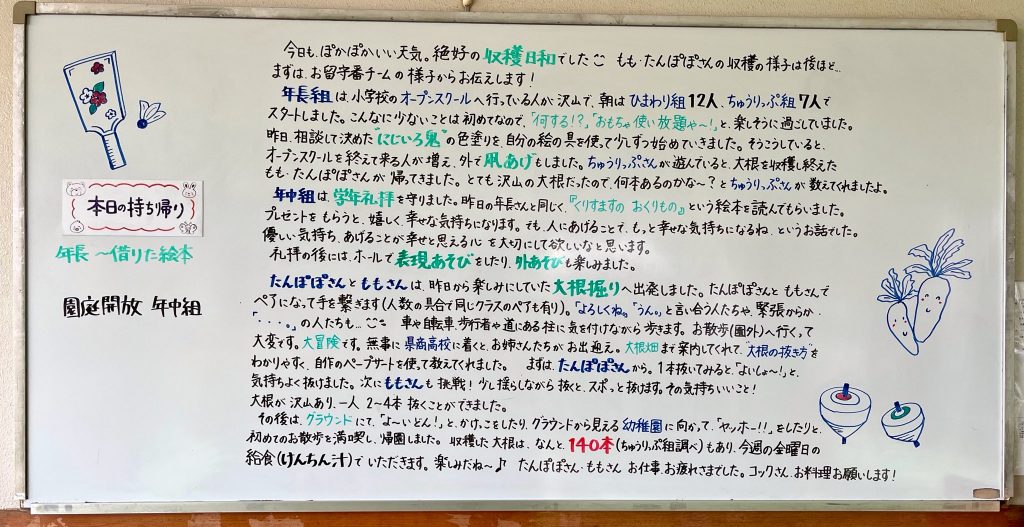 本日の持ち帰り
年長 〜借りた絵本
園庭開放 年中組
今日も、ぽかぽかいい天気。絶好の収穫日和でした もも・たんぽぽさんの収穫の様子は後ほど…
まずは、お留守番チームの様子からお伝えします！
年長組は、小学校のオープンスクールへ行っている人が沢山で、朝はひまわり組12人、ちゅうりっぷ組7人で
スタートしました。こんなに少ないことは初めてなので、「何する!?」「おもちゃ使い放題や〜！」と、楽しそうに過ごしていました。
昨日、相談して決めた"にじいろ鬼"の色塗りを、自分の絵の具を使って少しずつ始めていきました。そうこうしていると、
オープンスクールを終えて来る人が増え、外で凧あげもしました。ちゅうりっぷさんが遊んでいると、大根を収穫し終えた
もも・たんぽぽさんが帰ってきました。とても沢山の大根だったので、何本あるのかな〜？とちゅうりっぷさんが数えてくれましたよ。
年中組は、学年礼拝を守りました。昨日の年長さんと同じく、『くりすますの おくりもの』という絵本を読んでもらいました。
プレゼントをもらうと、嬉しく、幸せな気持ちになります。でも、人にあげることで、もっと幸せな気持ちになるね、というお話でした。
優しい気持ち、あげることが幸せと思える心を大切にして欲しいなと思います。
礼拝の後には、ホールで表現あそびをしたり、外あそびも楽しみました。
たんぽぽさんとももさんは、昨日から楽しみにしていた大根掘りへ出発しました。たんぽぽさんとももさんで
ペアになって手を繋ぎます(人数の具合で同じクラスのペアも有り)。「よろしくね。」「うん。」と言い合う人たちや、緊張からか・
「・・・・。」の人たちも… 車や自転車、歩行者や道にある柱に気を付けながら歩きます。お散歩(園外)へ行くって
大変です。大冒険です。無事に県商高校に着くと、お姉さんたちがお出迎え。大根畑まで案内してくれて、"大根の抜き方"を
わかりやすく、自作のペープサートを使って教えてくれました。 まずは、たんぽぽさんから。1本抜いてみると、「よいしょ〜！」と、
気持ちよく抜けました。次にももさんも挑戦！少し揺らしながら抜くと、スポっと抜けます。その気持ちいいこと！
大根が沢山あり、一人2〜4本抜くことができました。
その後は、グラウンドにて、「よ〜いどん！」と、かけっこをしたり、グラウンドから見える幼稚園に向かって、「ヤッホー!!」をしたりと、
初めてのお散歩を満喫し、帰園しました。収穫した大根は、なんと、140本(ちゅうりっぷ組調べ)もあり、今週の金曜日の
給食(けんちん汁)でいただきます。楽しみだね〜♪ たんぽぽさん・ももさん お仕事、お疲れさまでした。コックさん、お料理お願いします！